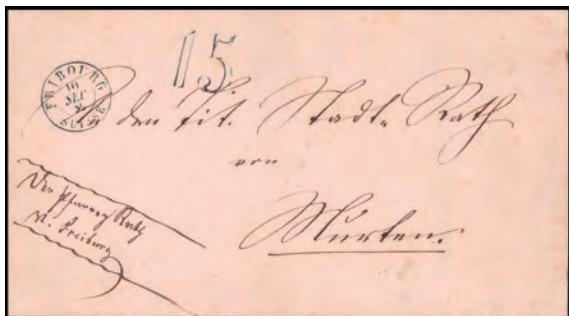 FRIBOURG
10
SEP
SUISSE
15.
An den Tit. Stadt-Rath
von
Murten.
Der Pfarrey Rath
v. Freiburg